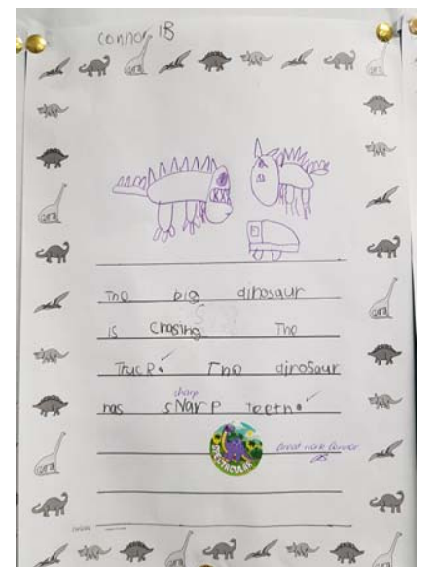 Connor 1B
The big dinosaur
is chasing The
Truck. The dinosaur
sharp
has sharp Teeth.
SPECTACULAR
Great work Connor